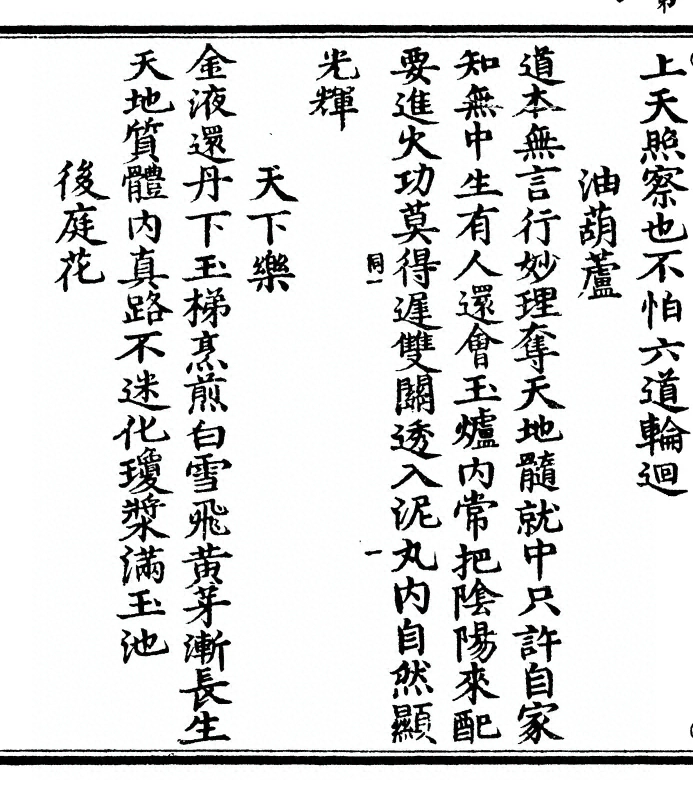 上天照察也不怕六道輪迴
油葫蘆
道本無言行妙理奪天地髓就中只許自家
知無中生有人還會玉爐內常把陰陽來配
要進火功莫得遲雙關透入泥丸內自然顯
同一
一
光輝
天下樂
金液還丹下玉梯烹煎白雪飛黃芽漸長生
天地質體內真路不迷化瓊漿滿玉池
後庭花